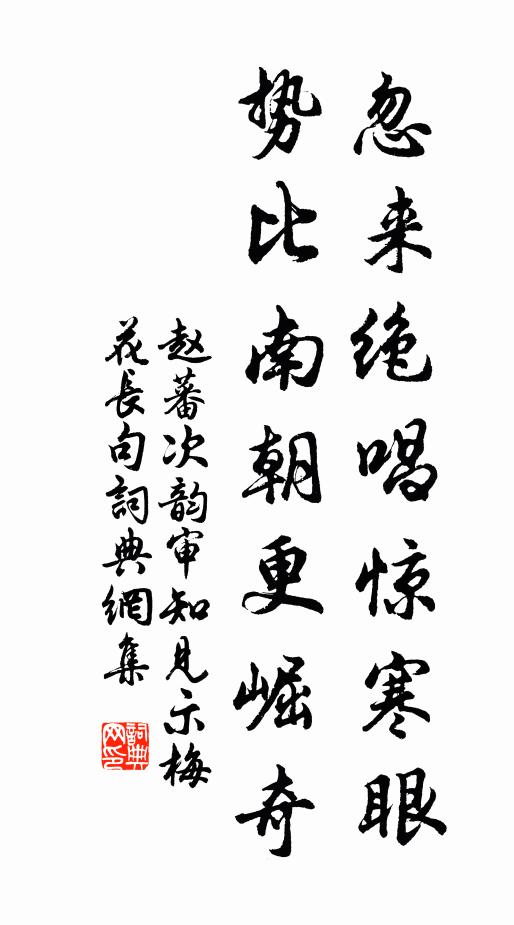 忽来绝唱惊寒眼
势比南朝更崛奇
赵蕃次韵审知见示梅
花長句詞典網集
詞典网印